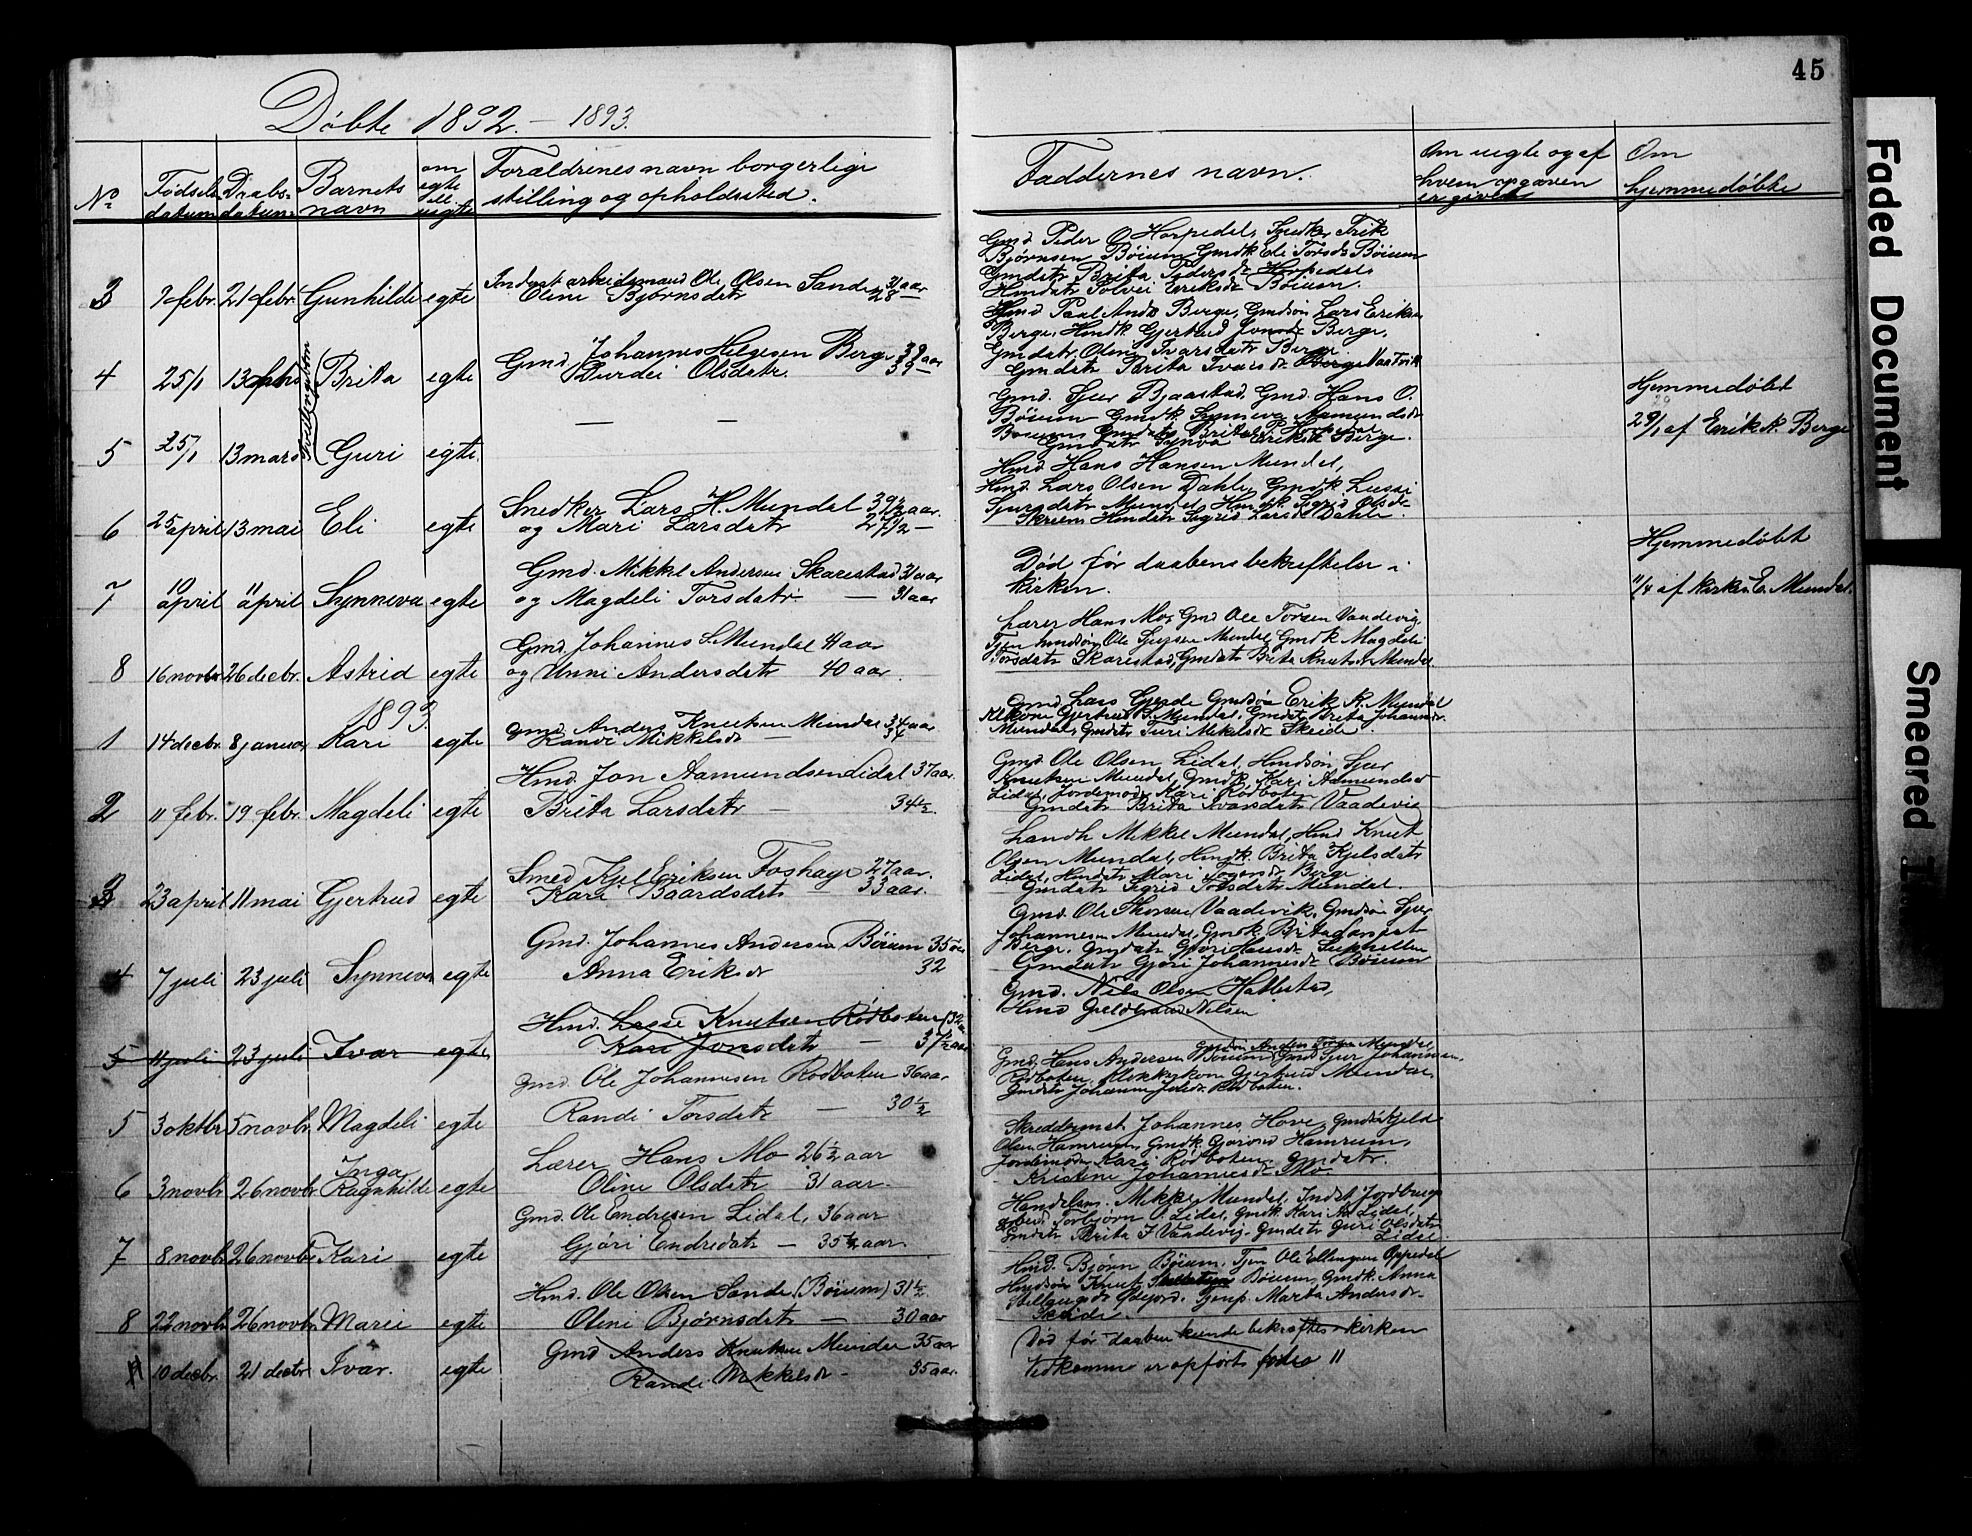 45
Døbte 1892. - 1893.
No
Fødsels
datum
Daabs-
datum
Barnets
navn
om
egte
ell.
uegte
Forældrenes navn borgerlige
stilling og opholdssted.
Faddernes navn.
Om uegte og af
hvem opgaven
er given
Om
hjemmedøbte
3 7 febr. 21 febr. Gunhilde egte
Inderst arbeidsmand Ole Olsen Sande 31 aar
Oline Bjørnsdatr 28 —
Gmd. Peder O. Horpedal, Snedker Erik
Bjørnsen Bøium, Gmdk Eli Torsdr Bøium
Gmdatr Brita Pedersdr Horpedal
Hmdatr Solvei Eriksdr Bøium.
4 25/1 13 Brita egte
Tvillingebørn
Gmd. Johannes Helgesen Berge 39 aar
Durdei Olsdatr. 39 —
Hmd Paul Ands Berge, Gmdsøn Lars Eriksen
Berge, Hmdk. Gjertrud Berge,
Gmdatr. Oline Ivarsdatr Berge
Gmdatr Brita Ivarsdr
5 25/1 13 mars Guri egte.
— —
Gmd. Sjur Bjaastad, Gmd. Hans O.
Bøium Gmdk. Synneva Aamundsdr
Gmdatr Brita P. Horpedal
Gmdatr Synva Eriksdr Berge.
Hjemmedøbt
29/1 af Erik A. Berge
6 25 april 13 mai Eli egte
Snedker Lars H. Mundal 39½ aar.
og Mari Larsdatr 27½ —
Hmd Hans Hansen Mundal,
Hmd. Lars Olsen Dahle, Gmdk
Sjursdatr Mundal, Hmdk. Sigrid Olsdr
Skreien Hmdatr Sigrid Larsdr Dahle.
7 10 april 11 april Synneva egte
Gmd. Mikkel Andersen Skarestad 31 aar
og Magdeli Torsdatr. — 31 aar
Død før daabens bekræftelse i
kirken.
Hjemmedøbt
11/4 af E. Mundal.
8 16 novbr 26 decbr. Astrid egte
Gmd. Johannes S. Mundal 41 aar
og Unni Andersdatr 40 aar.
Lærer Hans Mo, Gmd Ole Torsen Vaadevig
Ole Sjursen Mundal, Gmdk Magdeli
Torsdatr Skarestad, Gmdatr Brita Knutsdr Mundal
1893.
1 14 decbr. 8 januar Kari egte
Gmd. Anders Knutsen Mundal 34 aar
Randi Mikkelsdr — 34
Gmd. Lars Gjerde Gmdsøn Erik K. Mundal
Gjertrud S. Mundal, Gmdatr Brita Johannesdr
Mundal, Gmdatr Turi Mikelsdr Skeide.
2 11 febr. 19 febr. Magdeli egte
Hmd. Jon Aamundsen Lidal 37 aar.
Brita Larsdatr — 34½.
Gmd. Ole Olsen Lidal, Hmdsøn Sjur
Knutsen Mundal, Gmdk Kari Aamundsdr
Lidal, Jordemoder Kari Rødboten
Gmdatr Brita Ivarsdatr Vaadevig
3 23 april 11 mai Gjertrud egte
Smed Kjel Eriksen Foshage 27 aar.
Kari Baardsdatr — 33 aar.
Landh Mikkel Mundal, Hmd Knut
Olsen Mundal, Hmdk. Brita Kjelsdatr
Lidal, Hmdatr Mari Berge
Gmdatr Sigrid Torsdatr Mundal.
4 7 juli 23 juli Synneva egte
Gmd. Johannes Andersen Bøium 35 aar
Anna Eriksdr 32
Gmd. Ole Thorsen Vaadevik, Gmdsøn Sjur
Johannesen Mundal, Gmdk. Brita
Berge, Gmdatr Gjøri Hansdr Suphellen
Gmdatr Gjøri Johannesdr Bøium
5 11 juli 23 juli Ivar egte
Hmd. Lasse Knutsen Rødboten
Kari Jonsdatr — 37½ aar
Gmd. Nils Olsen Hatlestad,
Hmd Nilsen
5 3 oktbr 5 novbr Magdeli egte
Gmd. Ole Johannesen Rødboten 36 aar
Randi Torsdatr — 30½
Gmdsøn Anders Torsen Mundal
Gmd. Hans Andersen Bøium, Gmd Sjur Johannesen
Rødboten, Klokkerkone Gjertrud Mundal,
Gmdatr Johanne Rødboten.
6 3 novbr 26 novbr Inga
Ragnhilde egte
Lærer Hans Mo 26½ aar
Oline Olsdatr 31 aar.
Johannes Hove, Gmdsøn Kjeld
Olsen Hamrum, Gmdk. Hamrum,
Jordemoder Kari Rødboten, Gmdatr.
Kristine Johannesdr Mo
7 8 novbr 26 novbr Kari egte
Gmd. Ole Endresen Lidal, 36 aar
Gjøri Endredatr — 35½ aar.
Mikkel Mundal, Indst Jordbrugs
arbeid Torbjørn O. Lidal, Gmdk. Kari A. Lidal,
Gmdatr Brita I Vaadevig, Gmdatr Guri Olsdatr
Lidal.
8 22 novbr 26 novbr. Marie egte
Hmd. Ole Olsen Sande (Bøium) 31½
Oline Bjørnsdatr — 30 aar
Hmd. Bjørn Bøium, Tjen Ole Ellingsen Oppedal
Hmdsøn Knut Bøium, Gmdk. Anna
Marta Andersdr
Skeide.
10 decbr. 21 decbr Ivar. egte
Gmd Anders Knutsen Mundal 35 aar
Randi Mikkelsdr — 35 aar.
Død før daaben kunde bekræftes i kirken
Vedkommende er opført
Faded Document
Smeared